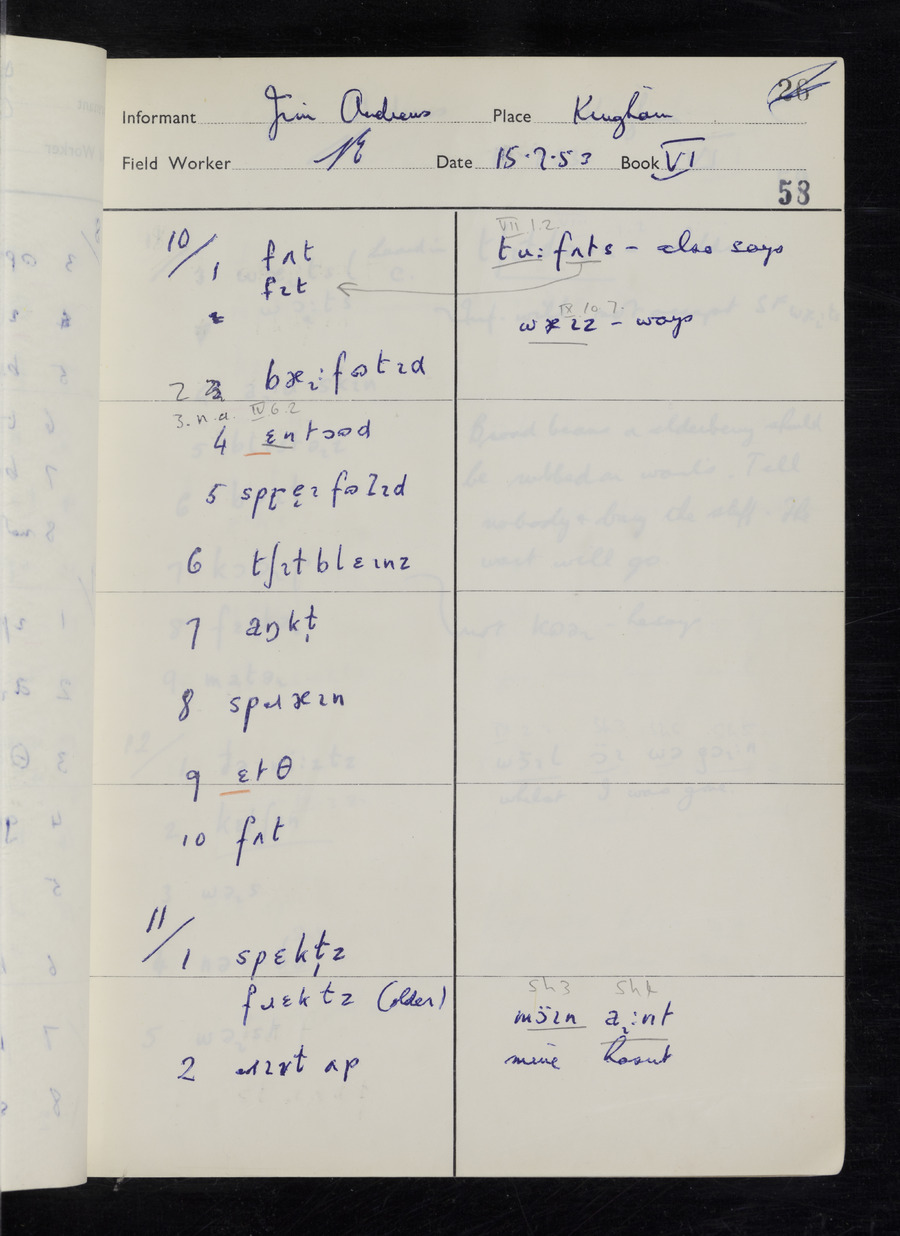 26
Informant Jim Andrews Place Kingham
Field Worker Date 15.7.53 Book VI
58
10/1 fʌt
fɪt
2 3 bæ̞ːfʊtɪd
3. n.a. IV 6.2
4 ɛntʊʊd
5 fʊɫɪd
6 tʃɪtblɛɪnz
7 aŋkt̩
8 spɹæɪn
9 ɛtθ
10 fʌt
11/1 spɛkt̩z
fɹɛktz (older)
2 ʌp
VII 1.2.
tuː fʌts – also says
IX 10.7.
ways
Sh3 Sh4
mɔ̈ɪn a̞ːnt
mine hasn't